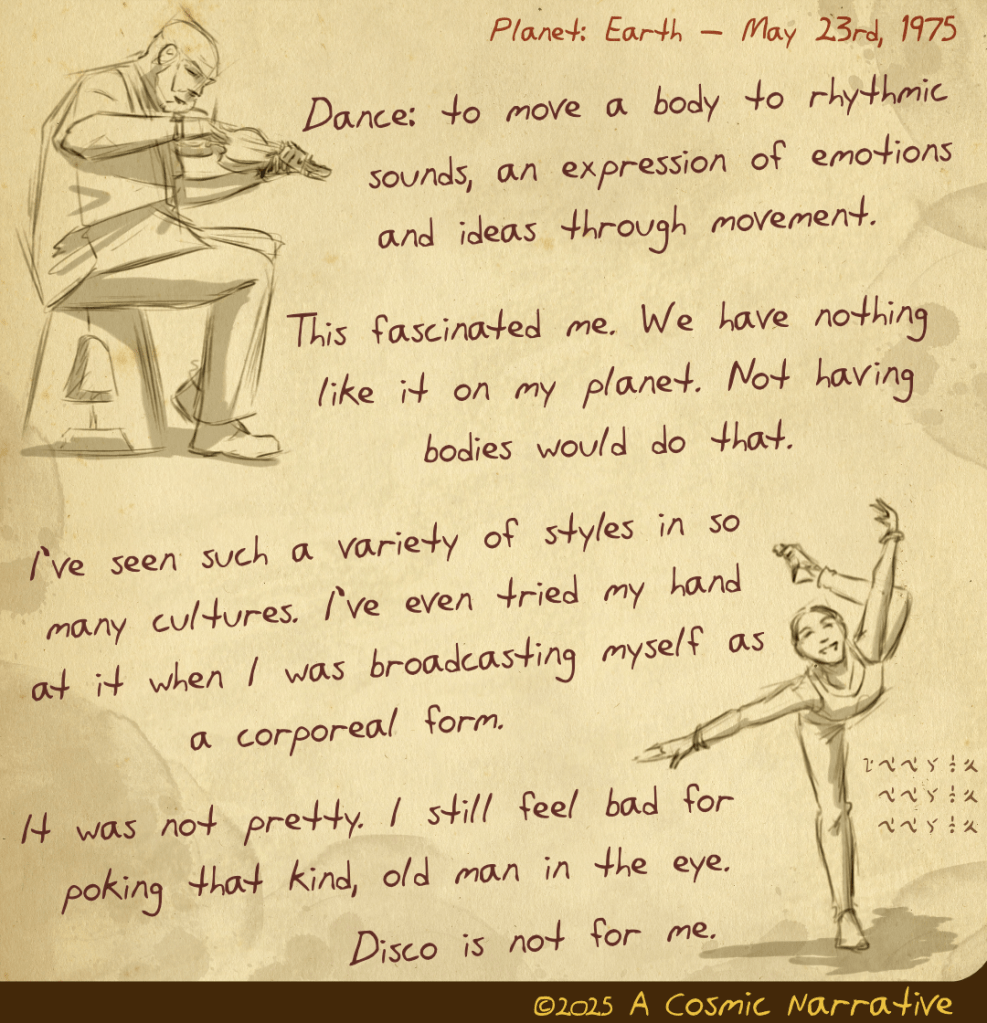 Planet: Earth – May 23rd, 1975
Dance: to move a body to rhythmic
sounds, an expression of emotions
and ideas through movement.
This fascinated me. We have nothing
like it on my planet. Not having
bodies would do that.
I've seen such a variety of styles in so
many cultures. I've even tried my hand
at it when I was broadcasting myself as
a corporeal form.
It was not pretty. I still feel bad for
poking that kind, old man in the eye.
Disco is not for me.
©2025 A Cosmic Narrative